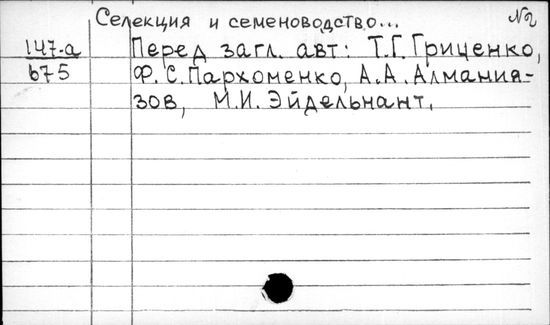 Селекция и семеноводство... №2
147-а Перед загл. авт: Т.Г. Гриценко,
b75 Ф.С. Пархоменко, А.А. Алмания-
зов, М.И. Эйдельнант.